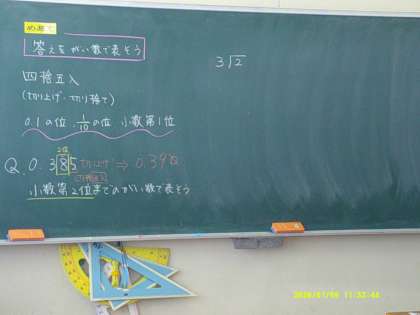 めあて
答えをがい数で表そう
四捨五入
(切り上げ・切り捨て)
0.1の位 1/10の位 小数第1位
2位
Q. 0.385 切り上げ ⇒ 0.39
小数第2位までのがい数で表そう
3√2